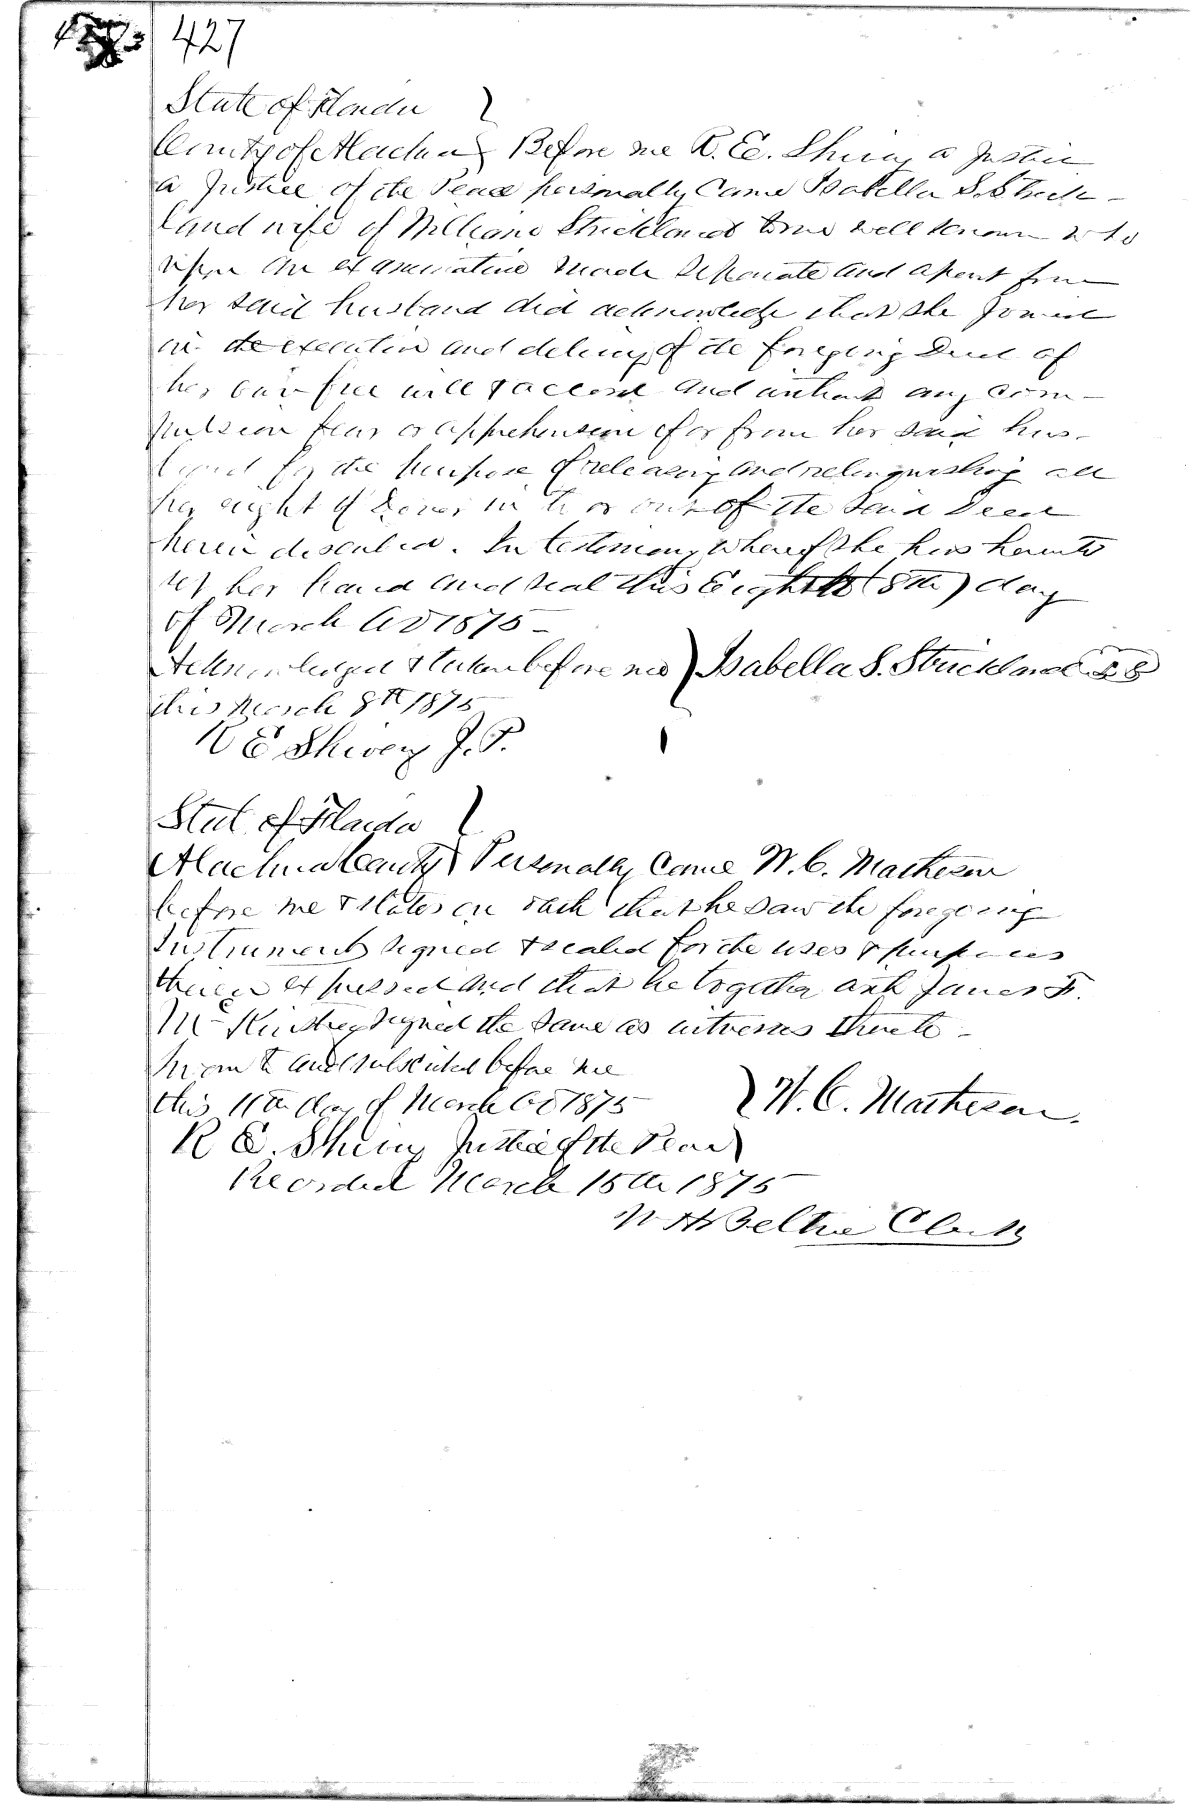 427
State of Florida }
County of Alachua } Before me R. E. Shivey a Justice
a Justice of the Peace personally Came Isabella S. Strick-
land wife of William Strickland to me well known who
upon an examination made separate and apart from
her said husband did acknowledge that she joined
in the execution and delivery of the foregoing Deed of
her own free will & accord and without any com-
pulsion fear or apprehension of or from her said hus-
band for the purpose of releasing and relinquishing all
her right of Dower in to or out of the said Deed
herein described. In testimony whereof she has hereunto
set her hand and seal this Eighth (8th) day
of March AD 1875-
Acknowledged & taken before me } Isabella S. Strickland LS
this March 8th 1875
R E Shivey J. P.
State of Florida }
Alachua County } Personally Came W. C. Matheson
before me & states on oath that he saw the foregoing
Instrument signed & sealed for the uses & purposes
therein expressed and that he together with James F.
McKinstry signed the same as witnesses thereto-
Sworn to and subscribed before me
this 11th day of March AD 1875 } W. C. Matheson.
R E. Shivey Justice of the Peace }
Recorded March 15th 1875
Clerk